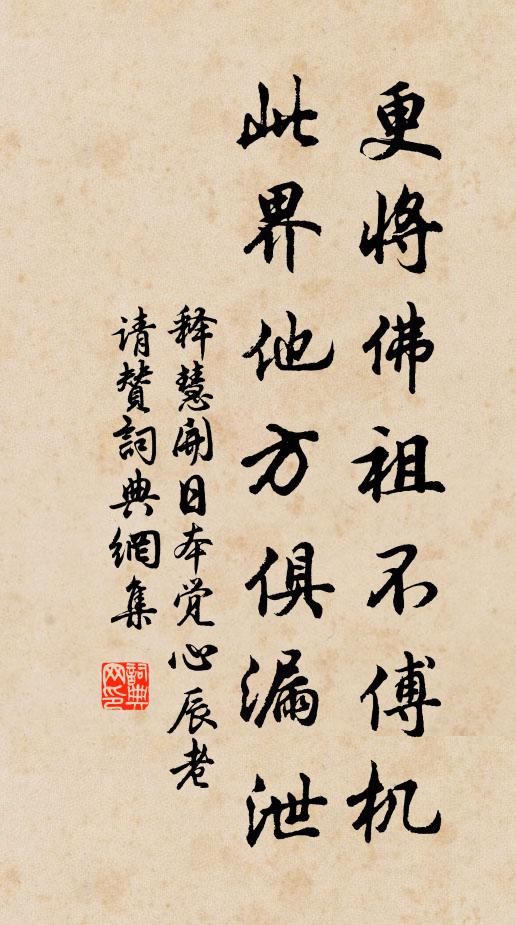 更将佛祖不傅机
此界他方俱漏泄
释慧開日本觉心辰老
请賛詞典網集
詞典网印